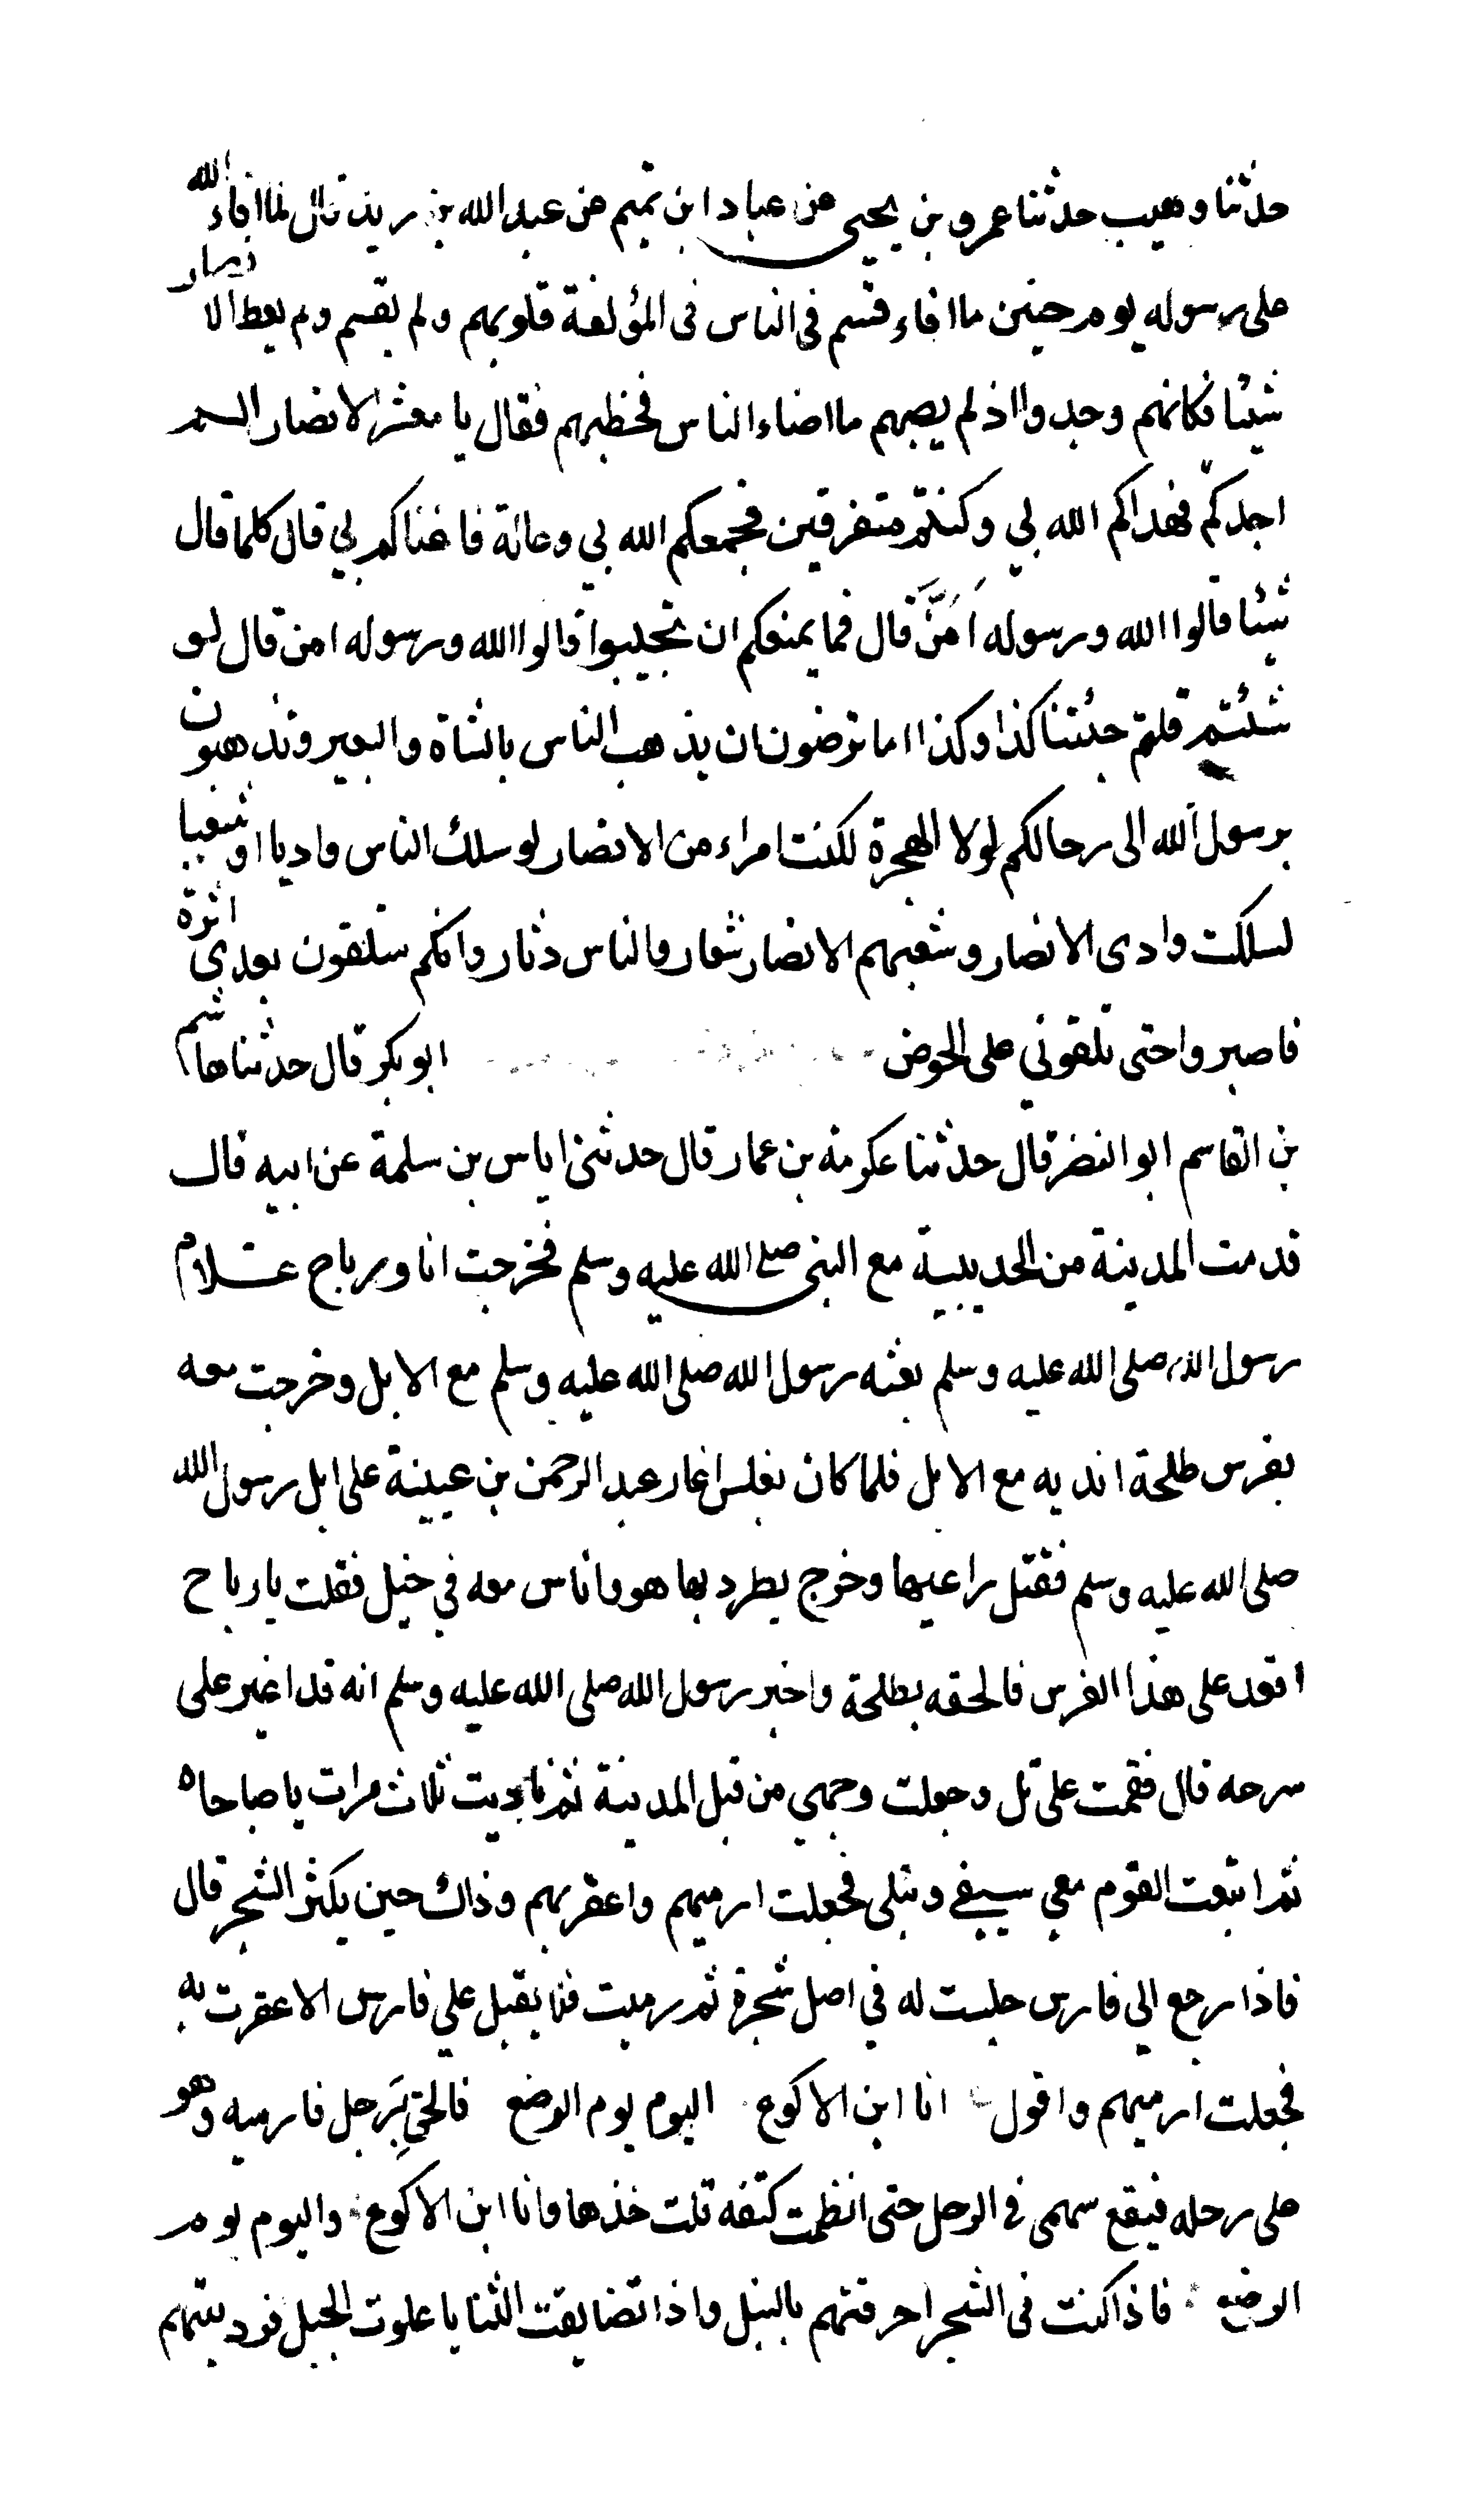 حدثنا وهيب حدثنا عمرو بن يحيى عن عباد ابن تميم عن عبد الله بن زيد قال لما افاء الله
على رسوله يوم حنين ما افاء قسم في الناس في المؤلفة قلوبهم ولم يقسم ولم يعط الانصار
شيئا فكانهم وجدوا اذ لم يصبهم ما اصاب الناس فخطبهم فقال يا معشر الانصار الم
اجدكم فهداكم الله بي وكنتم متفرقين فجمعكم الله بي وعالة فاغناكم بي قال كلما قال
شيئا قالوا الله ورسوله اَمَنَّ قال فما يمنعكم ان تجيبوا قالوا الله ورسوله امن قال لو
شئتم قلتم جئتنا كذا وكذا اما ترضون ان يذهب الناس بالشاة والبعير وتذهبون
برسول الله الى رحالكم لولا الهجرة لكنت امراء من الانصار لو سلك الناس واديا او شعبا
لسلكت وادى الانصار وشعبهم الانصار شعار والناس دثار وانكم ستلقون بعدي اثرة
فاصبروا حتى تلقوني على الحوض ابو بكر قال حدثنا هاشم
بن القاسم ابو النضر قال حدثنا عكرمة بن عمار قال حدثنى اياس بن سلمة عن ابيه قال
قدمت المدينة من الحديبية مع النبى صلى الله عليه وسلم فخرجت انا ورباح غلام
رسول الله صلى الله عليه وسلم بعثه رسول الله صلى الله عليه وسلم مع الابل وخرجت معه
بفرس طلحة انديه مع الابل فلما كان بغلس اغار عبد الرحمن بن عيينة على ابل رسول الله
صلى الله عليه وسلم فقتل راعيها وخرج يطرد بها هو واناس معه في خيل فقلت يا رباح
اقعد على هذا الفرس فالحقه بطلحة واخبر رسول الله صلى الله عليه وسلم انه قد اغير على
سرحه قال فقمت على تل وجعلت وجهي من قبل المدينة ثم ناديت ثلاث مرات يا صباحاه
ثم اتبعت القوم معي سيفي ونبلى فجعلت ارميهم واعقر بهم وذاك حين يكثر الشجر قال
فاذا رجع الي فارس جلست له في اصل شجرة ثم رميت فلا يقبل علي فارس الا عقرت به
فجعلت ارميهم واقول انا ابن الاكوع اليوم يوم الرضع فالحق بِرَجل فارميه وهو
على رحله فيقع سهمى في الرحل حتى انتظمت كتفه قلت خذها وانا ابن الاكوع واليوم يوم
الرضع فاذا كنت في الشجر احرقتهم بالنبل واذا تضايقت الثنايا علوت الجبل فرديتهم